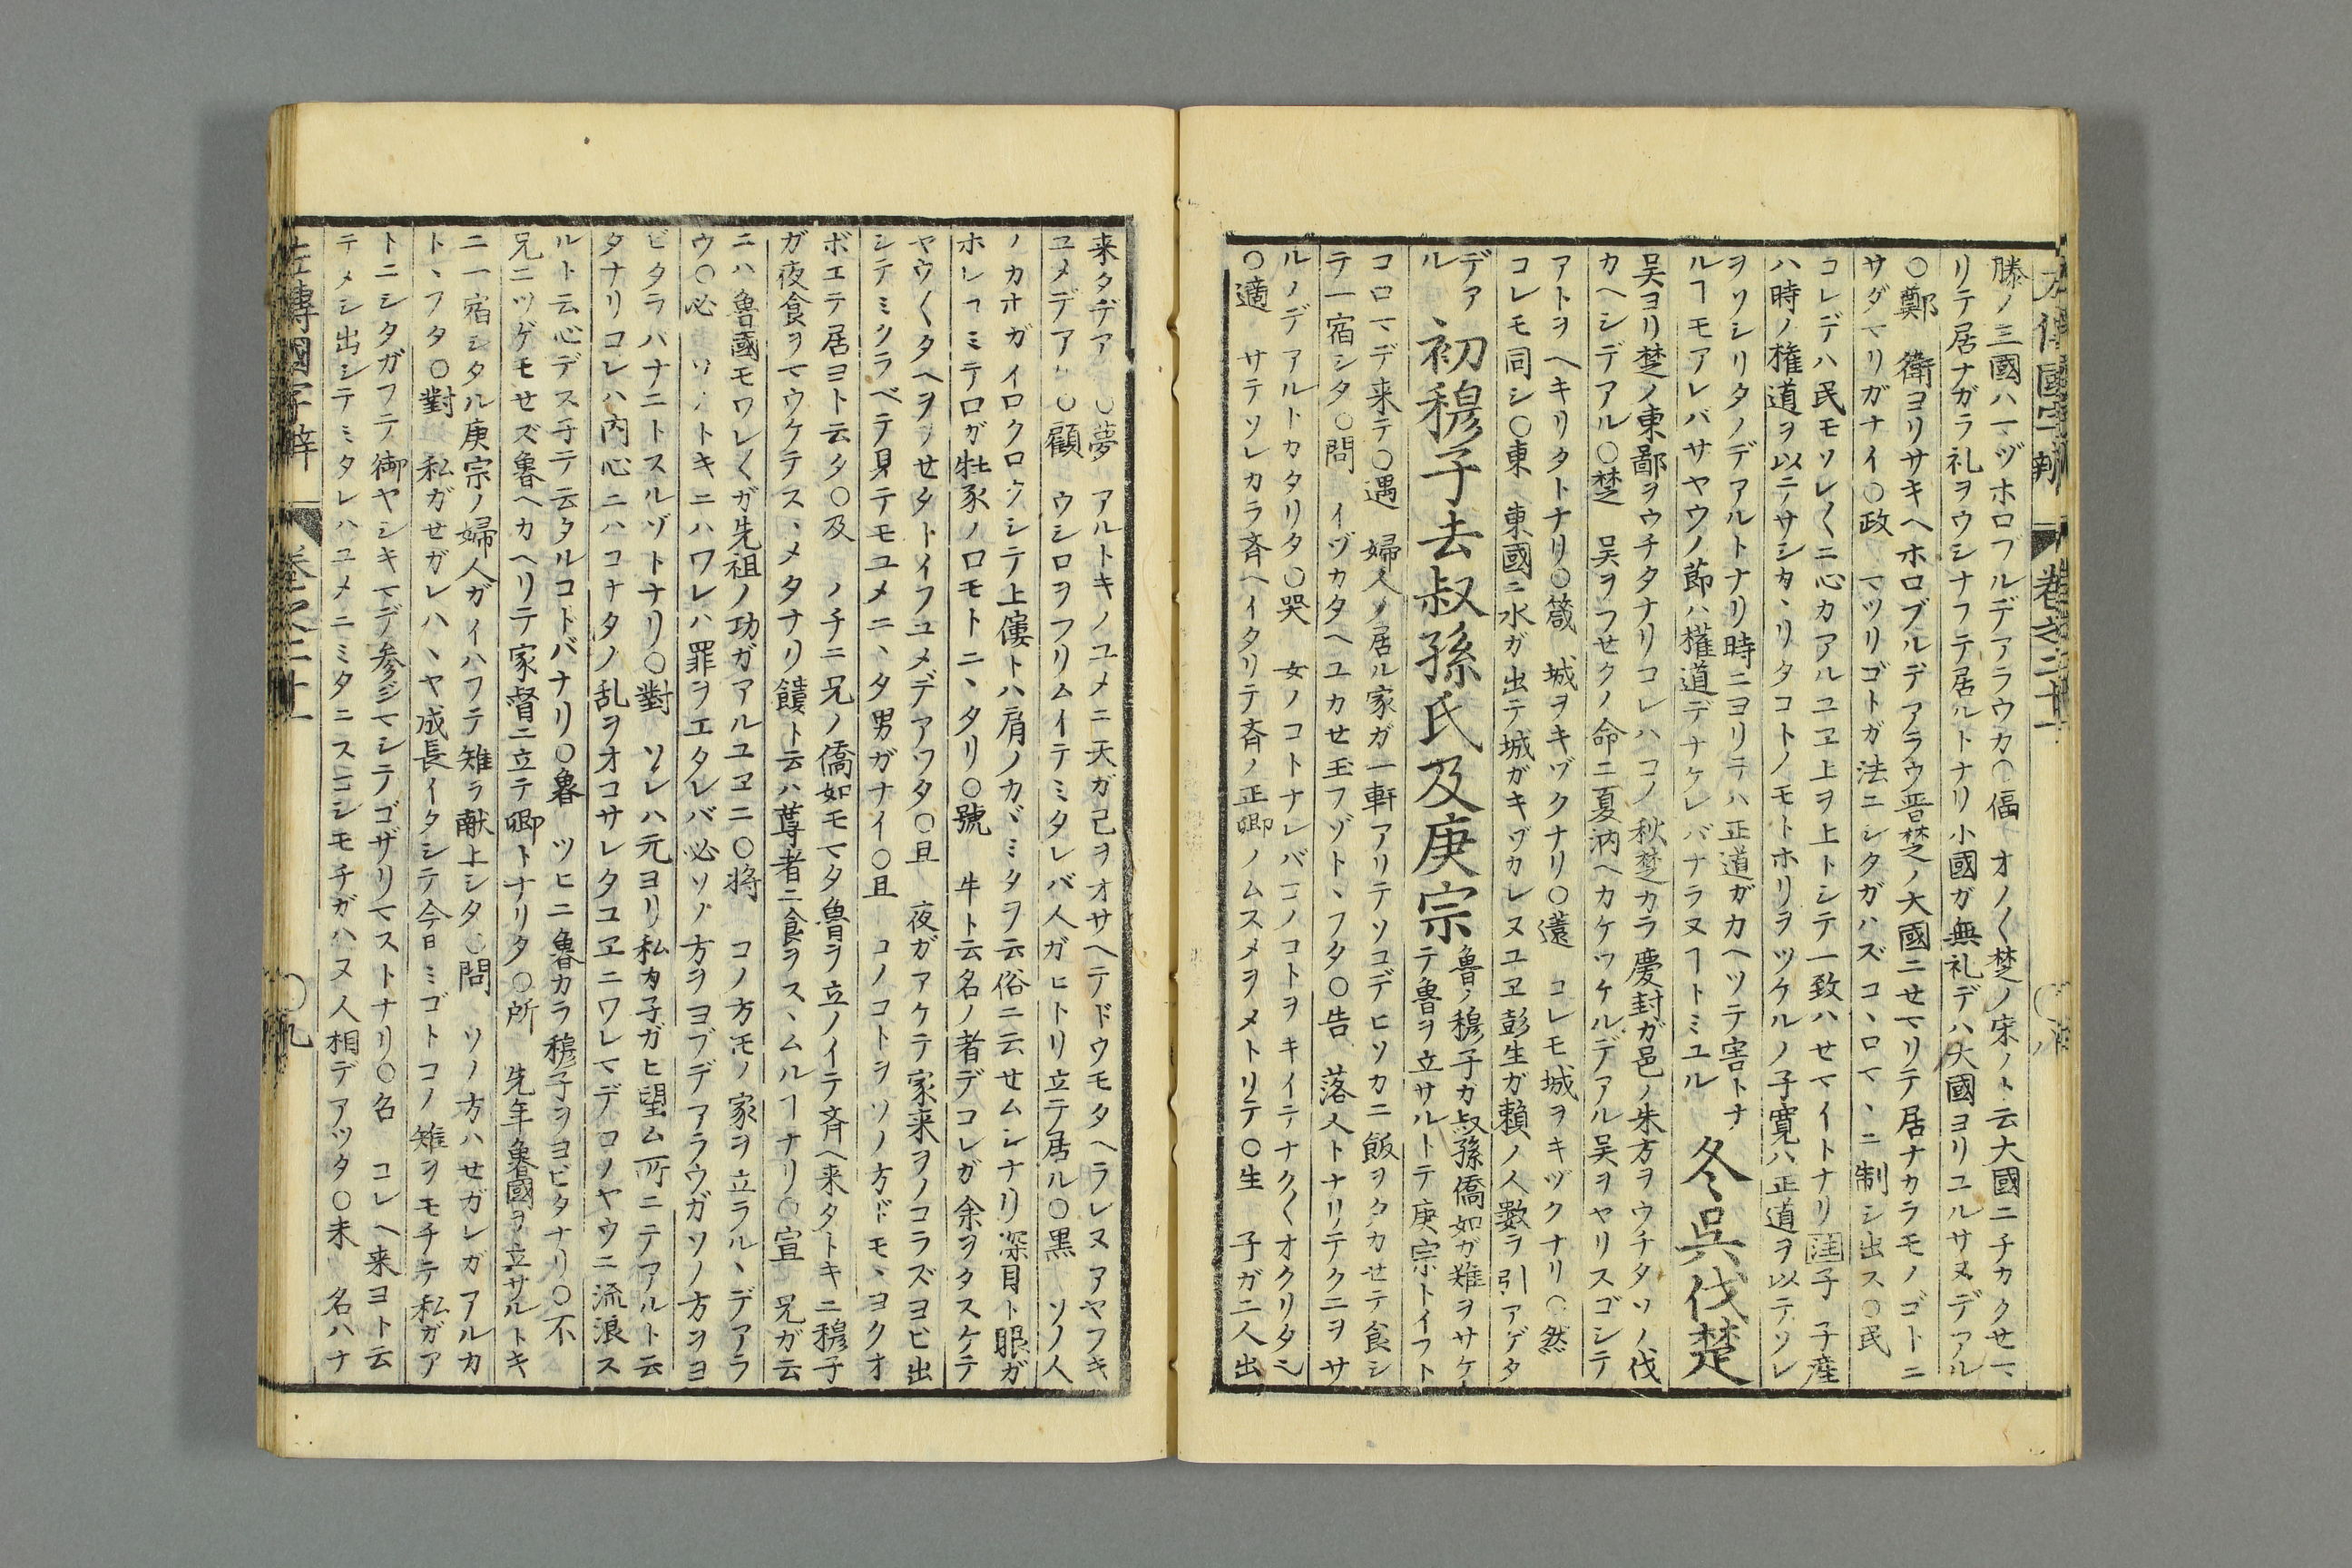 左傳國字辨　巻之二十一　〇八
滕ノ三國ハ一マヅホロブルデアラウカ〇偪　オノ〱楚ノ宋ノト云大國ニチカクセマ
リテ居ナガラ礼ヲウシナフテ居ルトナリ小國ガ無礼デハ大國ヨリユルサヌデアル
〇鄭　衛ヨリサキヘホロブルデアラウ晋楚ノ大國ニせマリテ居ナカラモノゴトニ
サダマリガナイ〇政　マツリゴトガ法ニシタガハズコヽロマヽニ制シ出ス〇民
コレデハ民モソレ〱ニ心カアルユヱ上ヲ上トシテ一致ハせマイトナリ注子　子産
ハ時ノ権道ヲ以テサシカヽリタコトノモトホリヲツケルノ子寛ハ正道ヲ以テソレ
ヲソシリタノデアルトナリ時ニヨリテハ正道ガカヘツテ害トナ
ルヿモアレバサヤウノ節ハ權道デナケレバナラヌヿトミユル
冬吳伐楚
吴ヨリ楚ノ東鄙ヲウチタナリコレハコノ秋楚カラ慶封ガ邑ノ朱方ヲウチタソノ伐
カヘシデアル〇楚　吴ヲフせクノ命ニ夏汭ヘカケツケルデアル吴ヲヤリスゴシテ
アトヲヘキリタトナリ〇箴　城ヲキヅクナリ〇薳　コレモ城ヲキヅクナリ〇然
コレモ同シ〇東　東國ニ水ガ出テ城ガキヅカレヌユヱ彭生ガ賴ノ人數ヲ引アゲタ
デア
ル
初穆子去叔孫氏及庚宗
魯ノ穆子カ叔孫僑如ガ難ヲサケ
テ魯ヲ立サルトテ庚宗トイフト
コロマデ来テ〇遇　婦人ノ居ル家ガ一軒アリテソコデヒソカニ飯ヲタカせテ食シ
テ一宿シタ〇問　イヅカタヘユカせ玉フゾトヽフタ〇告　落人トナリテクニヲサ
ルノデアルトカタリタ〇哭　女ノコトナレバコノコトヲキイテナク〱オクリタ〇
〇適　サテソレカラ斉ヘイタリテ斉ノ正卿ノムスメヲメトリテ〇生　子ガ二人出
来タヂア　〇夢　アルトキノユメニ天ガ己ヲオサヘテドウモタヘラレヌアヤフキ
ユメデア　〇顧　ウシロヲフリムイテミタレバ人ガヒトリ立テ居ル〇黒　ソノ人
ノカオガイロクロウシテ上僂トハ肩ノカヾミタヲ云俗ニ云せムシナリ深目ト眼ガ
ホレヿミテ口ガ牡豕ノ口モトニヽタリ〇號　牛ト云名ノ者デコレガ余ヲタスケテ
ヤウ〱タヘヲヽせタトイフユメデアツタ〇且　夜ガアケテ家来ヲノコラズヨビ出
シテミクラベテ見テモユメニヽタ男ガナイ〇且　コノコトヲソノ方ドモヽヨクオ
ボエテ居ヨト云タ〇及　ノチニ兄ノ僑如モマタ魯ヲ立ノイテ斉ヘ来タトキニ穆子
ガ夜食ヲマウケテスヽメタナリ饋ト云ハ尊者ニ食ヲスヽムルヿナリ〇宣　兄ガ云
ニハ魯國モワレ〱ガ先祖ノ功ガアルユヱニ〇將　コノ方モノ家ヲ立ラルヽデアラ
ウ〇必　ソノトキニハワレハ罪ヲエタレバ必ソノ方ヲヨブデアラウガソノ方ヲヨ
ビタラバナニトスルゾトナリ〇對　ソレハ元ヨリ私カ子ガヒ望ム所ニテアルト云
タナリコレハ内心ニハコナタノ乱ヲオコサレタユヱニワレマデコノヤウニ流浪ス
ルト云心デス子テ云タルコトバナリ〇魯　ツヒニ魯カラ穆子ヲヨビタナリ〇不
兄ニツゲモせズ魯ヘカヘリテ家督ニ立テ卿トナリタ〇所　先年魯國ヲ立サルトキ
ニ一宿シタル庚宗ノ婦人ガイハフテ雉ヲ献上シタ〇問　ソノ方ハせガレガアルカ
トヽフタ〇對　私ガせガレハヽヤ成長イタシテ今日ミゴトコノ雉ヲモチテ私ガア
トニシタガフテ御ヤシキマデ参ジマシテゴザリマストナリ〇名　コレヘ来ヨト云
テメシ出シテミタレハユメニミタニスコシモチガハヌ人相デアツタ〇未　名ハナ
左傳國字辨　巻之二十一　〇九